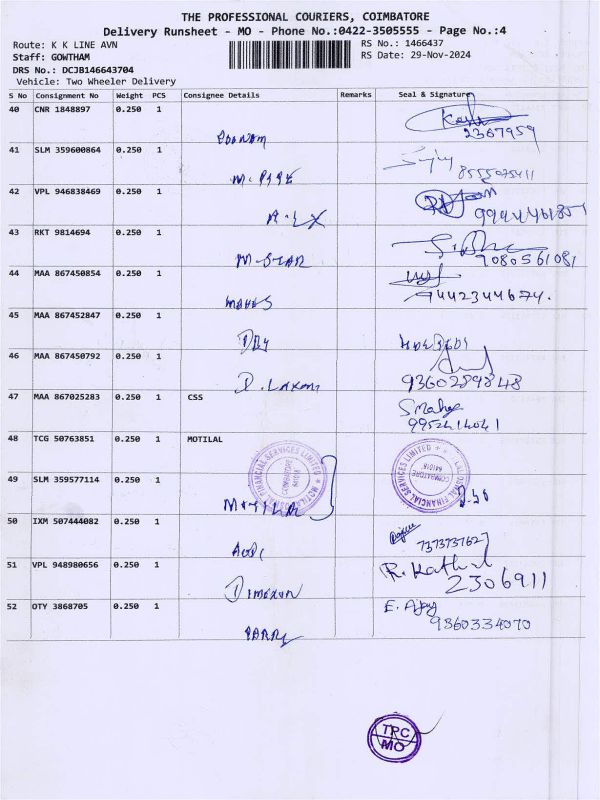 THE PROFESSIONAL COURIERS, COIMBATORE
Delivery Runsheet - MO - Phone No.:0422-3505555 - Page No.:4
Route: K K LINE AVN
RS No.: 1466437
Staff: GOWTHAM
RS Date: 29-Nov-2024
DRS No.: DCJB146643704
Vehicle: Two Wheeler Delivery
S No Consignment No Weight PCS Consignee Details Remarks Seal & Signature
40 CNR 1848897 0.250 1
2367959
41 SLM 359600864 0.250 1
42 VPL 946838469 0.250 1
43 RKT 9814694 0.250 1
9080561081
44 MAA 867450854 0.250 1
7442344674.
45 MAA 867452847 0.250 1
46 MAA 867450792 0.250 1
D. Laxmi
9360289848
47 MAA 867025283 0.250 1 CSS
9952414041
48 TCG 50763851 0.250 1 MOTILAL
FINANCIAL SERVICES LIMITED
COIMBATORE
49 SLM 359577114 0.250 1
50 IXM 507444082 0.250 1
7373737627
51 VPL 948980656 0.250 1
2306911
52 OTY 3868705 0.250 1
E. Ajay
9360334070
TPC
MO